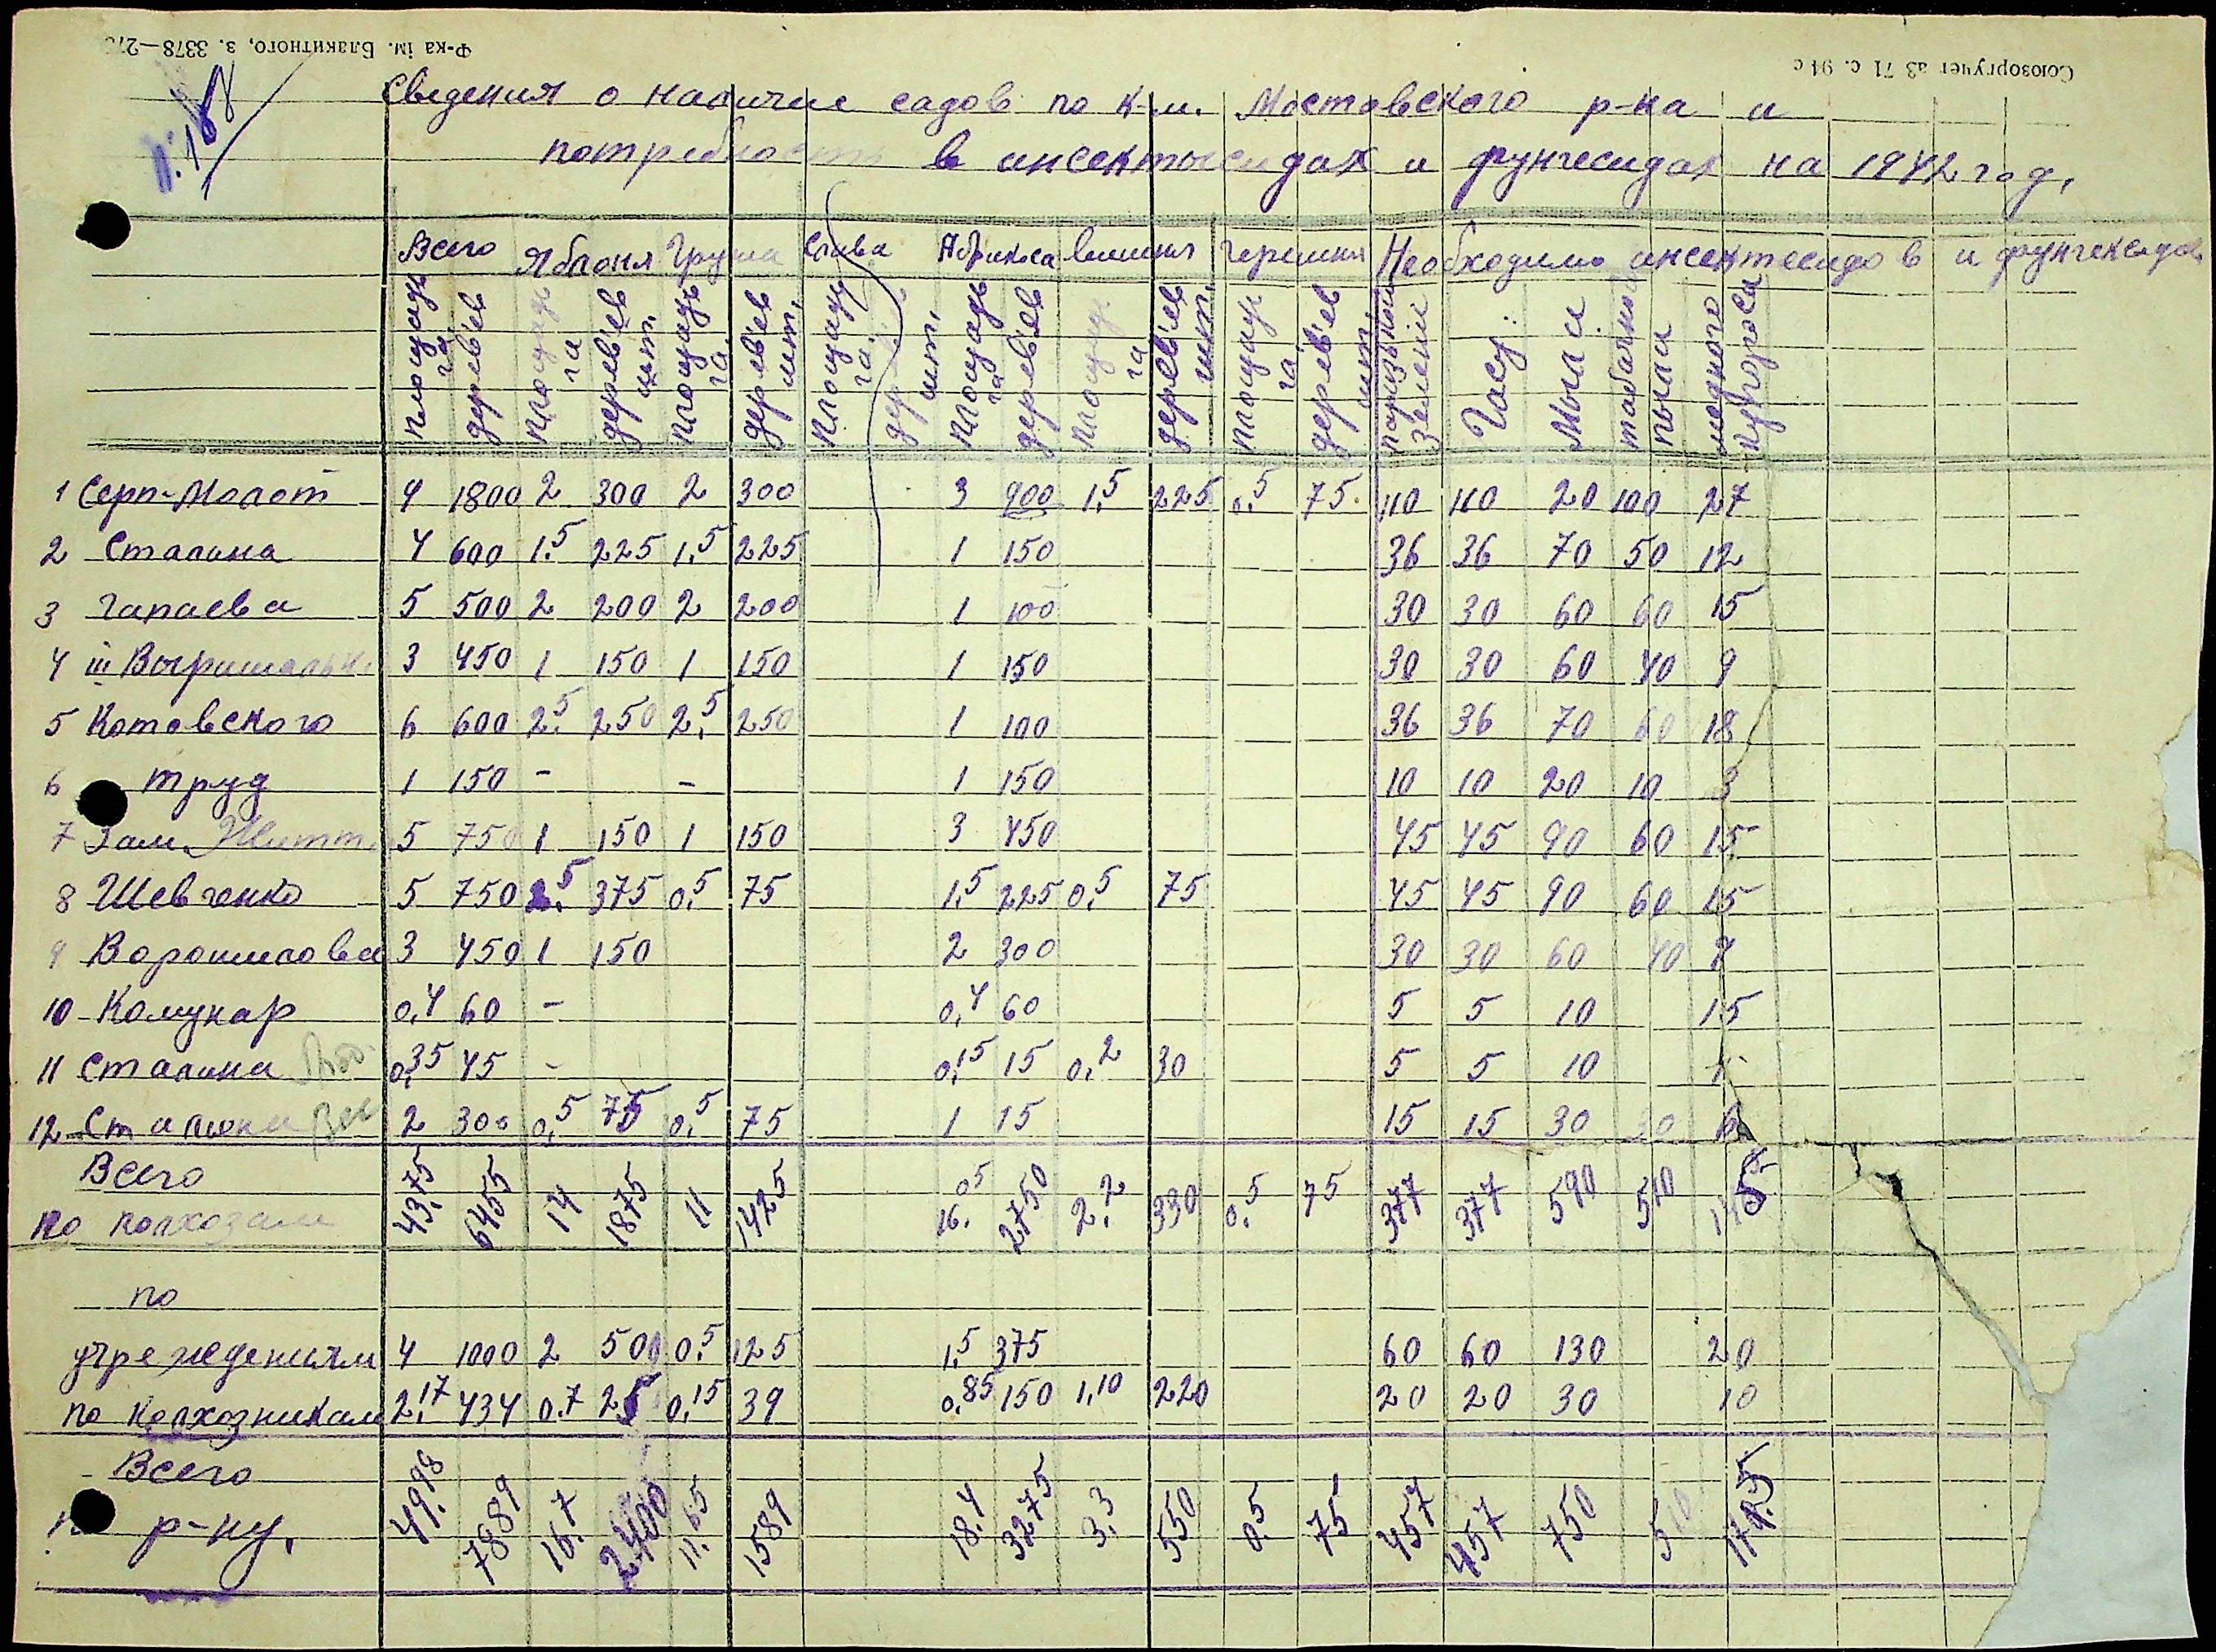 Ф-ка ім. Блакитного, з. 3378—27
Союзоргучет
Сведения о наличие садов по к-м. Мостовского р-на и
потребност в инсектысидах и фунгесидах на 1942 год.
Всего Яблоня Груша Слива Абрикоса вишня черешня Необходимо инсектесидов и фунгексидов
площадь га деревьев площадь га деревьев шт. площадь га. деревьев шт. площадь га. дер шт. площадь га деревьев площ. га деревьев шт. площадь га. деревьев шт. парижской зелени Гасу: Мыла табачной пыли медного купороса
1 Серп-Молот 9 1800 2 300 2 300 3 900 1,5 225 0,5 75. 110 110 20 100 27
2 Сталина 4 600 1,5 225 1,5 225 1 150 36 36 70 50 12
3 Чапаева 5 500 2 200 2 200 1 100 30 30 60 60 15
4 ІІІ Выришальн. 3 450 1 150 1 150 1 150 30 30 60 40 9
5 Котовского 6 600 2,5 250 2,5 250 1 100 36 36 70 60 18
6 труд 1 150 – – 1 150 10 10 20 10 3
7 Зам. Житт. 5 750 1 150 1 150 3 450 45 45 90 60 15
8 Шевченко 5 750 2,5 375 0,5 75 1,5 225 0,5 75 45 45 90 60 15
9 Ворошилова 3 450 1 150 2 300 30 30 60 40
10 Комунар 0,4 60 – 0,4 60 5 5 10 15
11 Сталина 0,35 45 – 0,15 15 0,2 30 5 5 10
12 Сталина 2 300 0,5 75 0,5 75 1 15 15 15 30 30 6
Всего
по колхозам 43,75 6455 14 1875 11 1425 16,05 2750 2,2 330 0,5 75 377 377 590 510
по
учреждениям 4 1000 2 500 0,5 125 1,5 375 60 60 130 20
по колхозникам 2,17 434 0,7 25 0,15 39 0,85 150 1,10 220 20 20 30 10
Всего
по р-ну. 49,98 7889 16,7 2400 11,65 1589 18,4 3275 3,3 550 0,5 75 457 457 750 510